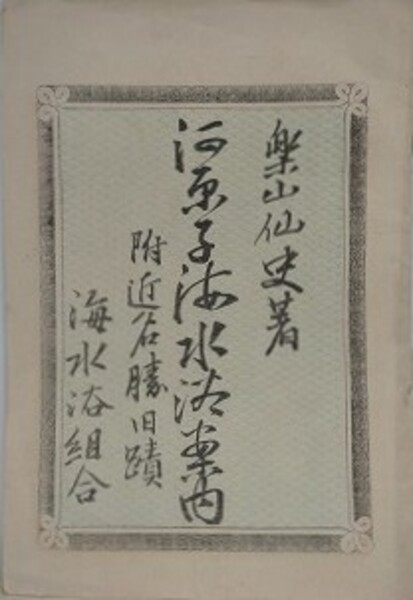 楽山仙史著
河原子海水浴案内
附近名勝旧蹟
海水浴組合